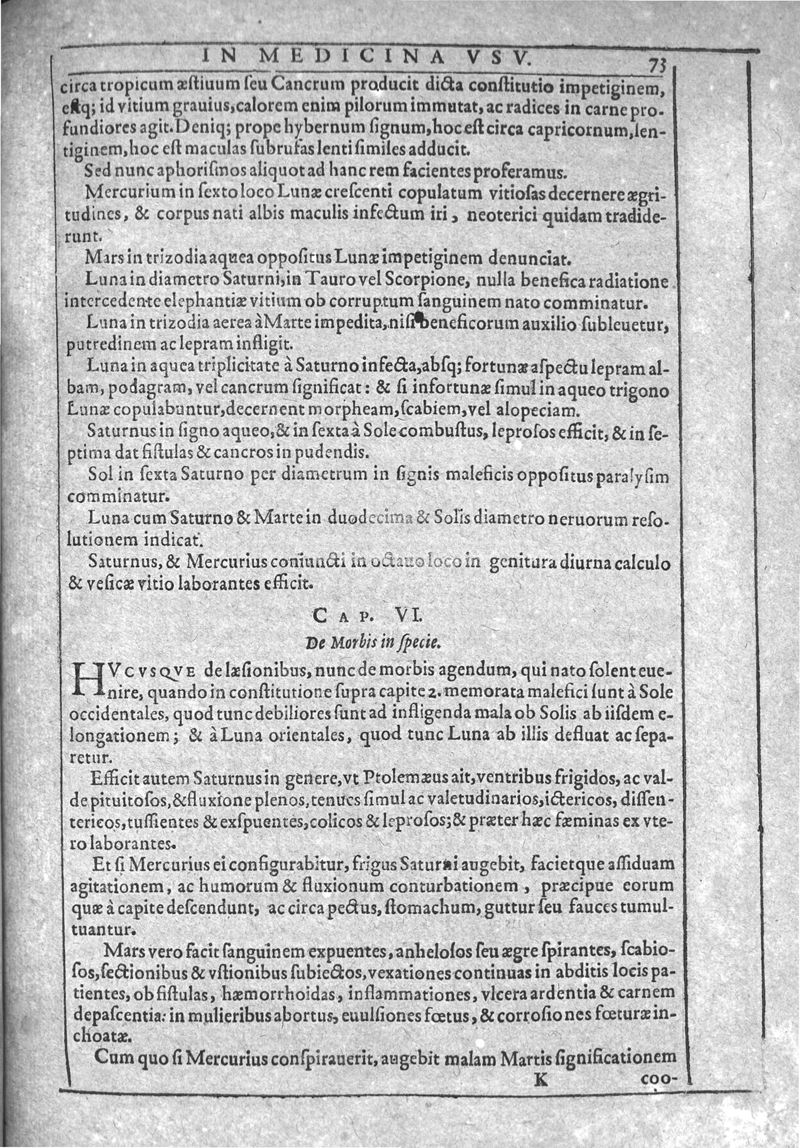 IN MEDICINA VSV. 73
circa tropicum æstiuum seu Cancrum producit dicta constitutio impetiginem,
estq; id vitium grauius, calorem enim pilorum immutat, ac radices in carne pro-
fundiores agit. Deniq; prope hybernum signum, hoc est circa capricornum, len-
tiginem, hoc est maculas subrufas lenti similes adducit.
Sed nunc aphorismos aliquot ad hanc rem facientes proferamus.
Mercurium in sexto loco Lunæ crescenti copulatum vitiosas decernere ægri-
tudines, & corpus nati albis maculis infectum iri, neoterici quidam tradide-
runt.
Mars in trizodia aquea oppositus Lunæ impetiginem denunciat.
Luna in diametro Saturni, in Tauro vel Scorpione, nulla benefica radiatione
intercedente elephantiæ vitium ob corruptum sanguinem nato comminatur.
Luna in trizodia aerea à Marte impedita, nisi beneficorum auxilio subleuetur,
putredinem ac lepram infligit.
Luna in aquea triplicitate à Saturno infecta, absq; fortunæ aspectu lepram al-
bam, podagram, vel cancrum significat: & si infortunæ simul in aqueo trigono
Lunæ copulabuntur, decernent morpheam, scabiem, vel alopeciam.
Saturnus in signo aqueo, & in sexta à Sole combustus, leprosos efficit, & in se-
ptima dat fistulas & cancros in pudendis.
Sol in sexta Saturno per diametrum in signis maleficis oppositus paralysim
comminatur.
Luna cum Saturno & Marte in duodecima & Solis diametro neruorum reso-
lutionem indicat.
Saturnus, & Mercurius coniuncti in octauo loco in genitura diurna calculo
& vesicæ vitio laborantes efficit.
CAP. VI.
De Morbis in specie.
HVCVSQVE de læsionibus, nunc de morbis agendum, qui nato solent eue-
nire, quando in constitutione supra capite 2. memorata malefici sunt à Sole
occidentales, quod tunc debiliores sunt ad infligenda mala ob Solis ab iisdem e-
longationem; & à Luna orientales, quod tunc Luna ab illis defluat ac sepa-
retur.
Efficit autem Saturnus in genere, vt Ptolemæus ait, ventribus frigidos, ac val-
de pituitosos, & fluxione plenos, tenues simul ac valetudinarios, ictericos, dissen-
tericos, tussientes & exspuentes, colicos & leprosos; & præter hæc fæminas ex vte-
ro laborantes.
Et si Mercurius ei configurabitur, frigus Saturni augebit, facietque assiduam
agitationem, ac humorum & fluxionum conturbationem, præcipue eorum
quæ à capite descendunt, ac circa pectus, stomachum, guttur seu fauces tumul-
tuantur.
Mars vero facit sanguinem expuentes, anhelosos seu ægre spirantes, scabio-
sos, sectionibus & vstionibus subiectos, vexationes continuas in abditis locis pa-
tientes, ob fistulas, hæmorrhoidas, inflammationes, vlcera ardentia & carnem
depascentia: in mulieribus abortus, euulsiones fœtus, & corrosiones fœturæ in-
choatæ.
Cum quo si Mercurius conspirauerit, augebit malam Martis significationem
K coo-